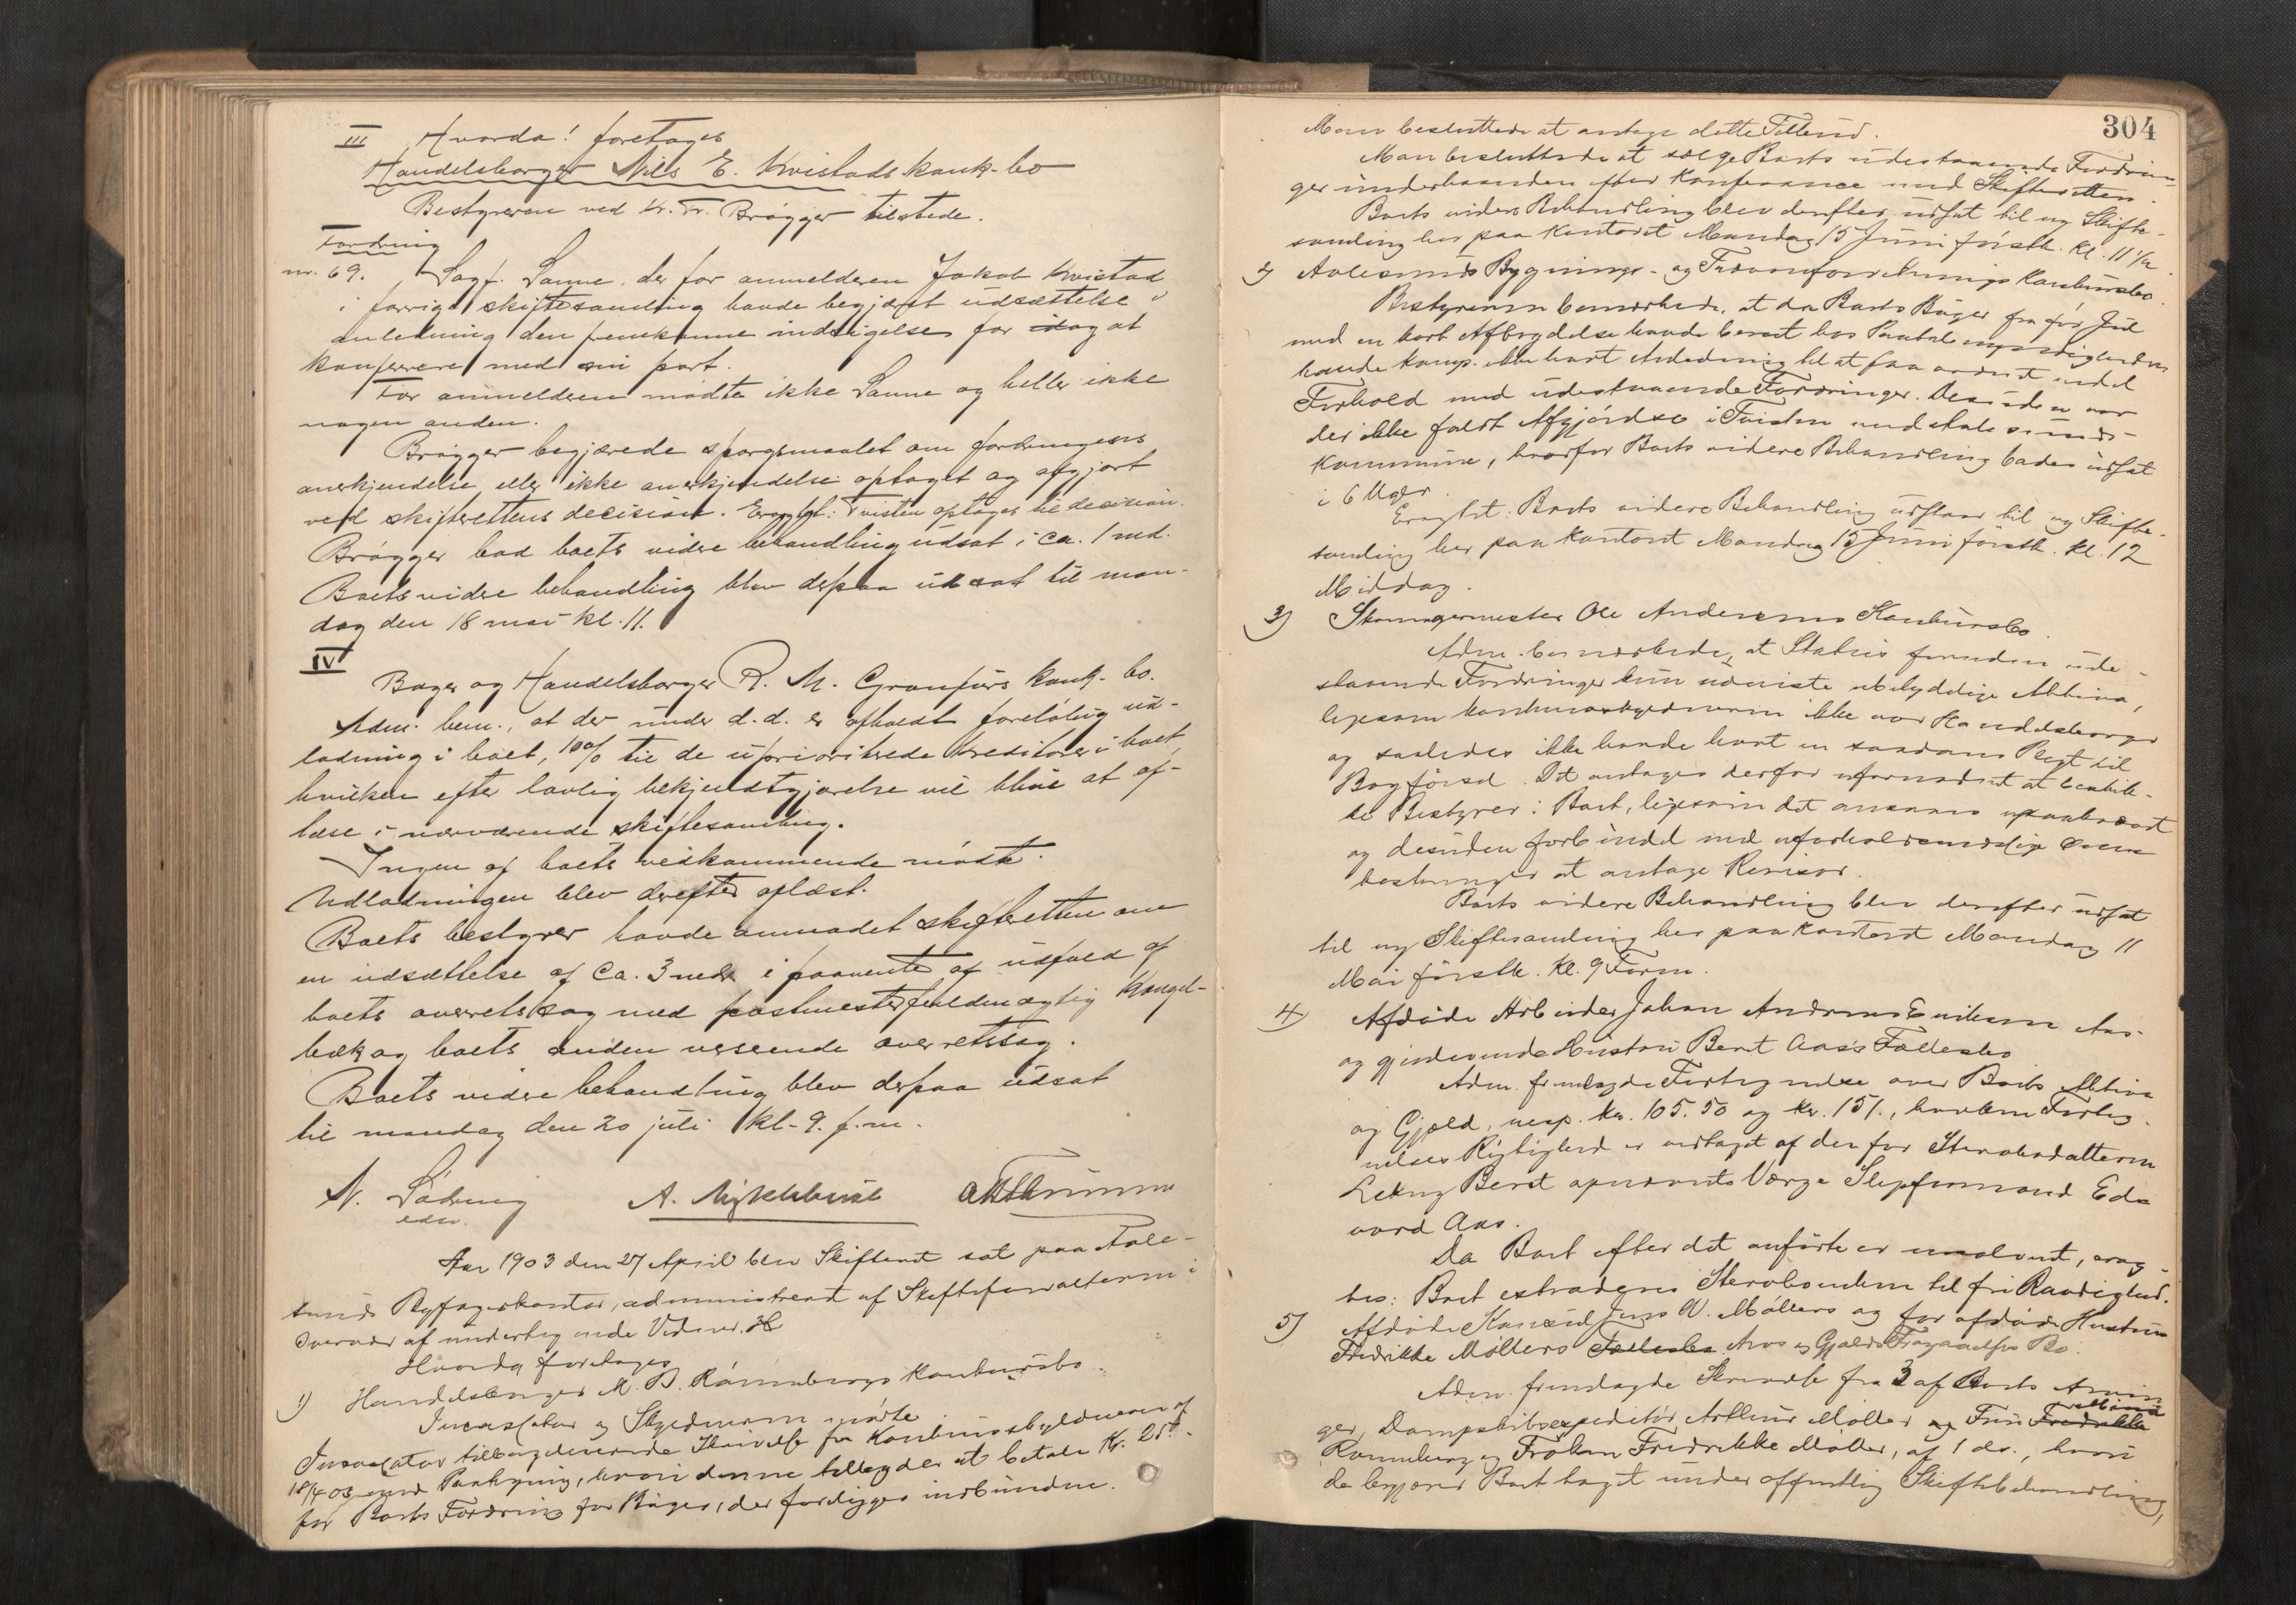 III Hvorda! foretages
Handelsborger Nils E. Kvistads konk-bo
Bestyreren ved Kr. Fr. Brøgger tilstede.
Fordring
nr. 69. Sagf. Sanne, der for anmelderen Jakob Kvistad
i forrige skiftesamling havde begjært udsættelse i
anledning den fremkomne indsigelse for idag at
konferrere med sin part.
For anmelderen mødte ikke Sanne og heller ikke
nogen anden.
Brøgger begjærede spørgsmaalet om fordringens
anerkjendelse eller ikke anerkjendelse optaget og afgjort
ved skifterettens decision. Eragtet: Tvisten optages til decision.
Brøgger bad boets videre behandling udsat i ca. 1 md.
Boets videre behandling blev derpaa udsat til man-
dag den 18 mai kl. 11.
IV
Bager og Handelsborger R. M. Granfürs konk-bo.
Adm. bem., at der under d.d. er afholdt foreløbig ud-
lodning i boet, 10% til de uprioriterede kreditorer i boet,
hvilken efter lovlig bekjendtgjørelse vil blive at op-
læse i nærværende skiftesamling.
Ingen af boets vedkommende mødte.
Udlodningen blev derefter oplæst.
Boets bestyrer havde anmodet skifteretten om
en udsættelse af ca. 3 mdr i paavente af udfald af
boets overretssag med postmesterfuldmægtig Kongel-
bæk og boets anden verserende overretssag.
Boets videre behandling blev derpaa udsat
til mandag den 20 juli kl. 9. f.m.
N. Lødning A. Myklebust
edsv.
Aar 1903 den 27 April blev Skifteret sat paa Aale-
sunds Byfogedkontor, administreret af Skifteforvalteren i
Overvær af undertegnede Vidner.
Hvorda foretages
1) Handelsborger M. B. Rønnebergs Konkursbo.
Incassator og Skyldneren mødte
Incassator tilbageleverede Skrivelse fra Konkursskyldneren af
18/4 03 med Paategning, hvori denne tilbyder at betale Kr. 25.-
for Boets Fordring for Bøger, der foreligges indbundne.
304
Man besluttede at antage dette Tilbud.
Man besluttede at sælge Boets udestaaende Fordrin-
ger underhaanden efter Konferance med Skifteretten.
Boets videre Behandling blev derefter udsat til ny Skifte-
samling her paa Kontoret Mandag 15 Juni førstk. Kl. 11 1/2.
2) Aalesunds Bygnings- og Konkursbo.
Bestyreren bemærkede, at da Boets Bøger fra før Jul
med en kort Afbrydelse havde beroet hos
havde ikke havt Anledning til at faa ordnet endel
Forhold med udestaaende Fordringer. Desuden var
der ikke faldt Afgjørelse i Tvisten med Aalesunds
Kommune, hvorfor Boets videre Behandling bades udsat
i 6 Uger.
Eragtet: Boets videre Behandling udstaar til ny Skifte-
samling her paa Kontoret Mandag 15 Juni førstk. Kl. 12
Middag.
3) Skomagermester Ole Andersens Konkursbo.
Adm. bemærkede, at Status foruden ude-
staaende Fordringer kun udviste ubetydelige Aktiva,
ligesom Konkursskyldneren ikke var Handelsborger
og saaledes ikke havde havt en saadans Pligt til
Bogførsel. Det antages derfor ufornødent at beskik-
ke Bestyrer i Boet, ligesom det ansaaes upaakrævet
og desuden forbundet med uforholdsmæssige Om-
kostninger at antage Revisor.
Boets videre Behandling blev derefter udsat
til ny Skiftesamling her paa Kontoret Mandag 11
Mai førstk. Kl. 9 Form.
4) Afdøde Arbeider Johan Andreas Eriksen Aas
og gjenlevende Hustru Berit Aas's Fællesbo
Adm. fremlagde Fortegnelse over Boets Aktiva
og Gjæld, resp. Kr. 105.50 og Kr. 151., hvilken Forteg-
nelses Rigtighed er vedtaget af den for Stervbodatteren
Berit opnævnte Værge Slipformand Ed-
vard Aas.
Da Boet efter det anførte er insolvent, erag-
tes: Boet extraderes Stervboenken til fri Raadighed.
5) Afdøde Konsul Jens W. Møllers og før afdøde Hustru
Fredrikke Møllers Fællesbo Arvs og Gjælds Fragaaelses Bo.
Adm. fremlagde Skrivelse fra 3 af Boets Arvin-
ger, Dampskibsexpeditør Arthur Møller og Fru Fredrikke
Rønneberg og Frøken Fredrikke Møller, af 1 ds., hvori
de begjærer Boet taget under offentlig Skiftebehandling,